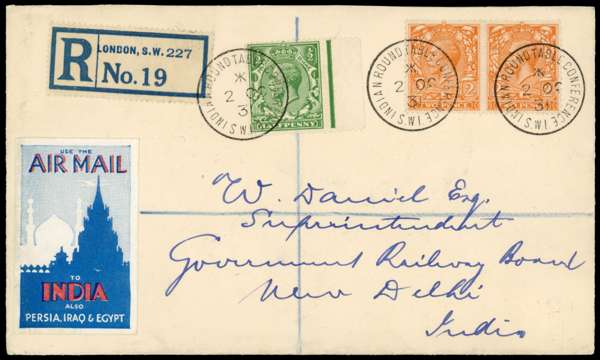 LONDON, S.W. 227
R No. 19
INDIAN ROUND TABLE CONFERENCE S.W.1
2 OC
31
INDIAN ROUND TABLE CONFERENCE S.W.1
2 OC
31
INDIAN ROUND TABLE CONFERENCE S.W.1
2 OC
31
USE THE
AIR MAIL
TO
INDIA
ALSO
PERSIA, IRAQ & EGYPT
W. Daniel Esq.
Superintendent
Government Railway Board
New Delhi
India